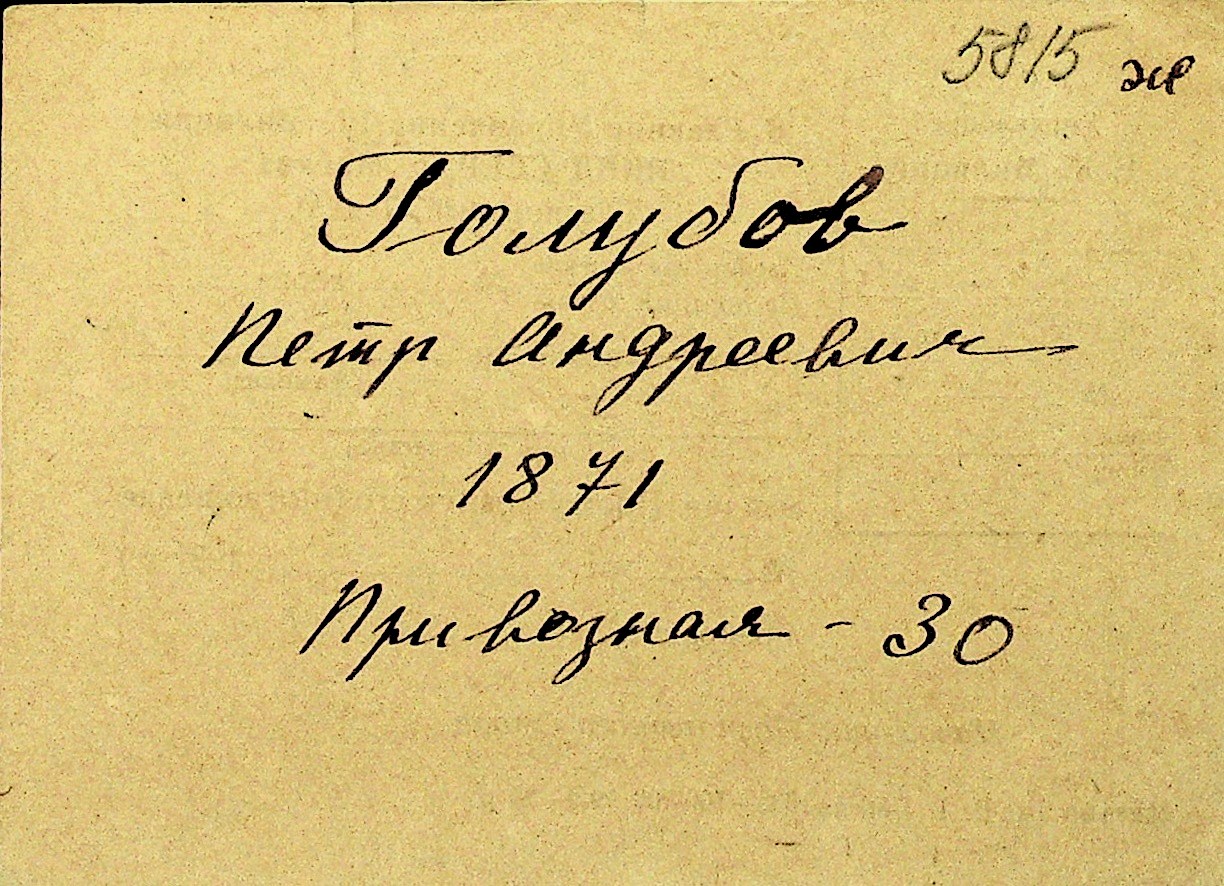 5815 ж
Голубов
Петр Андреевич
1871
Привозная - 30